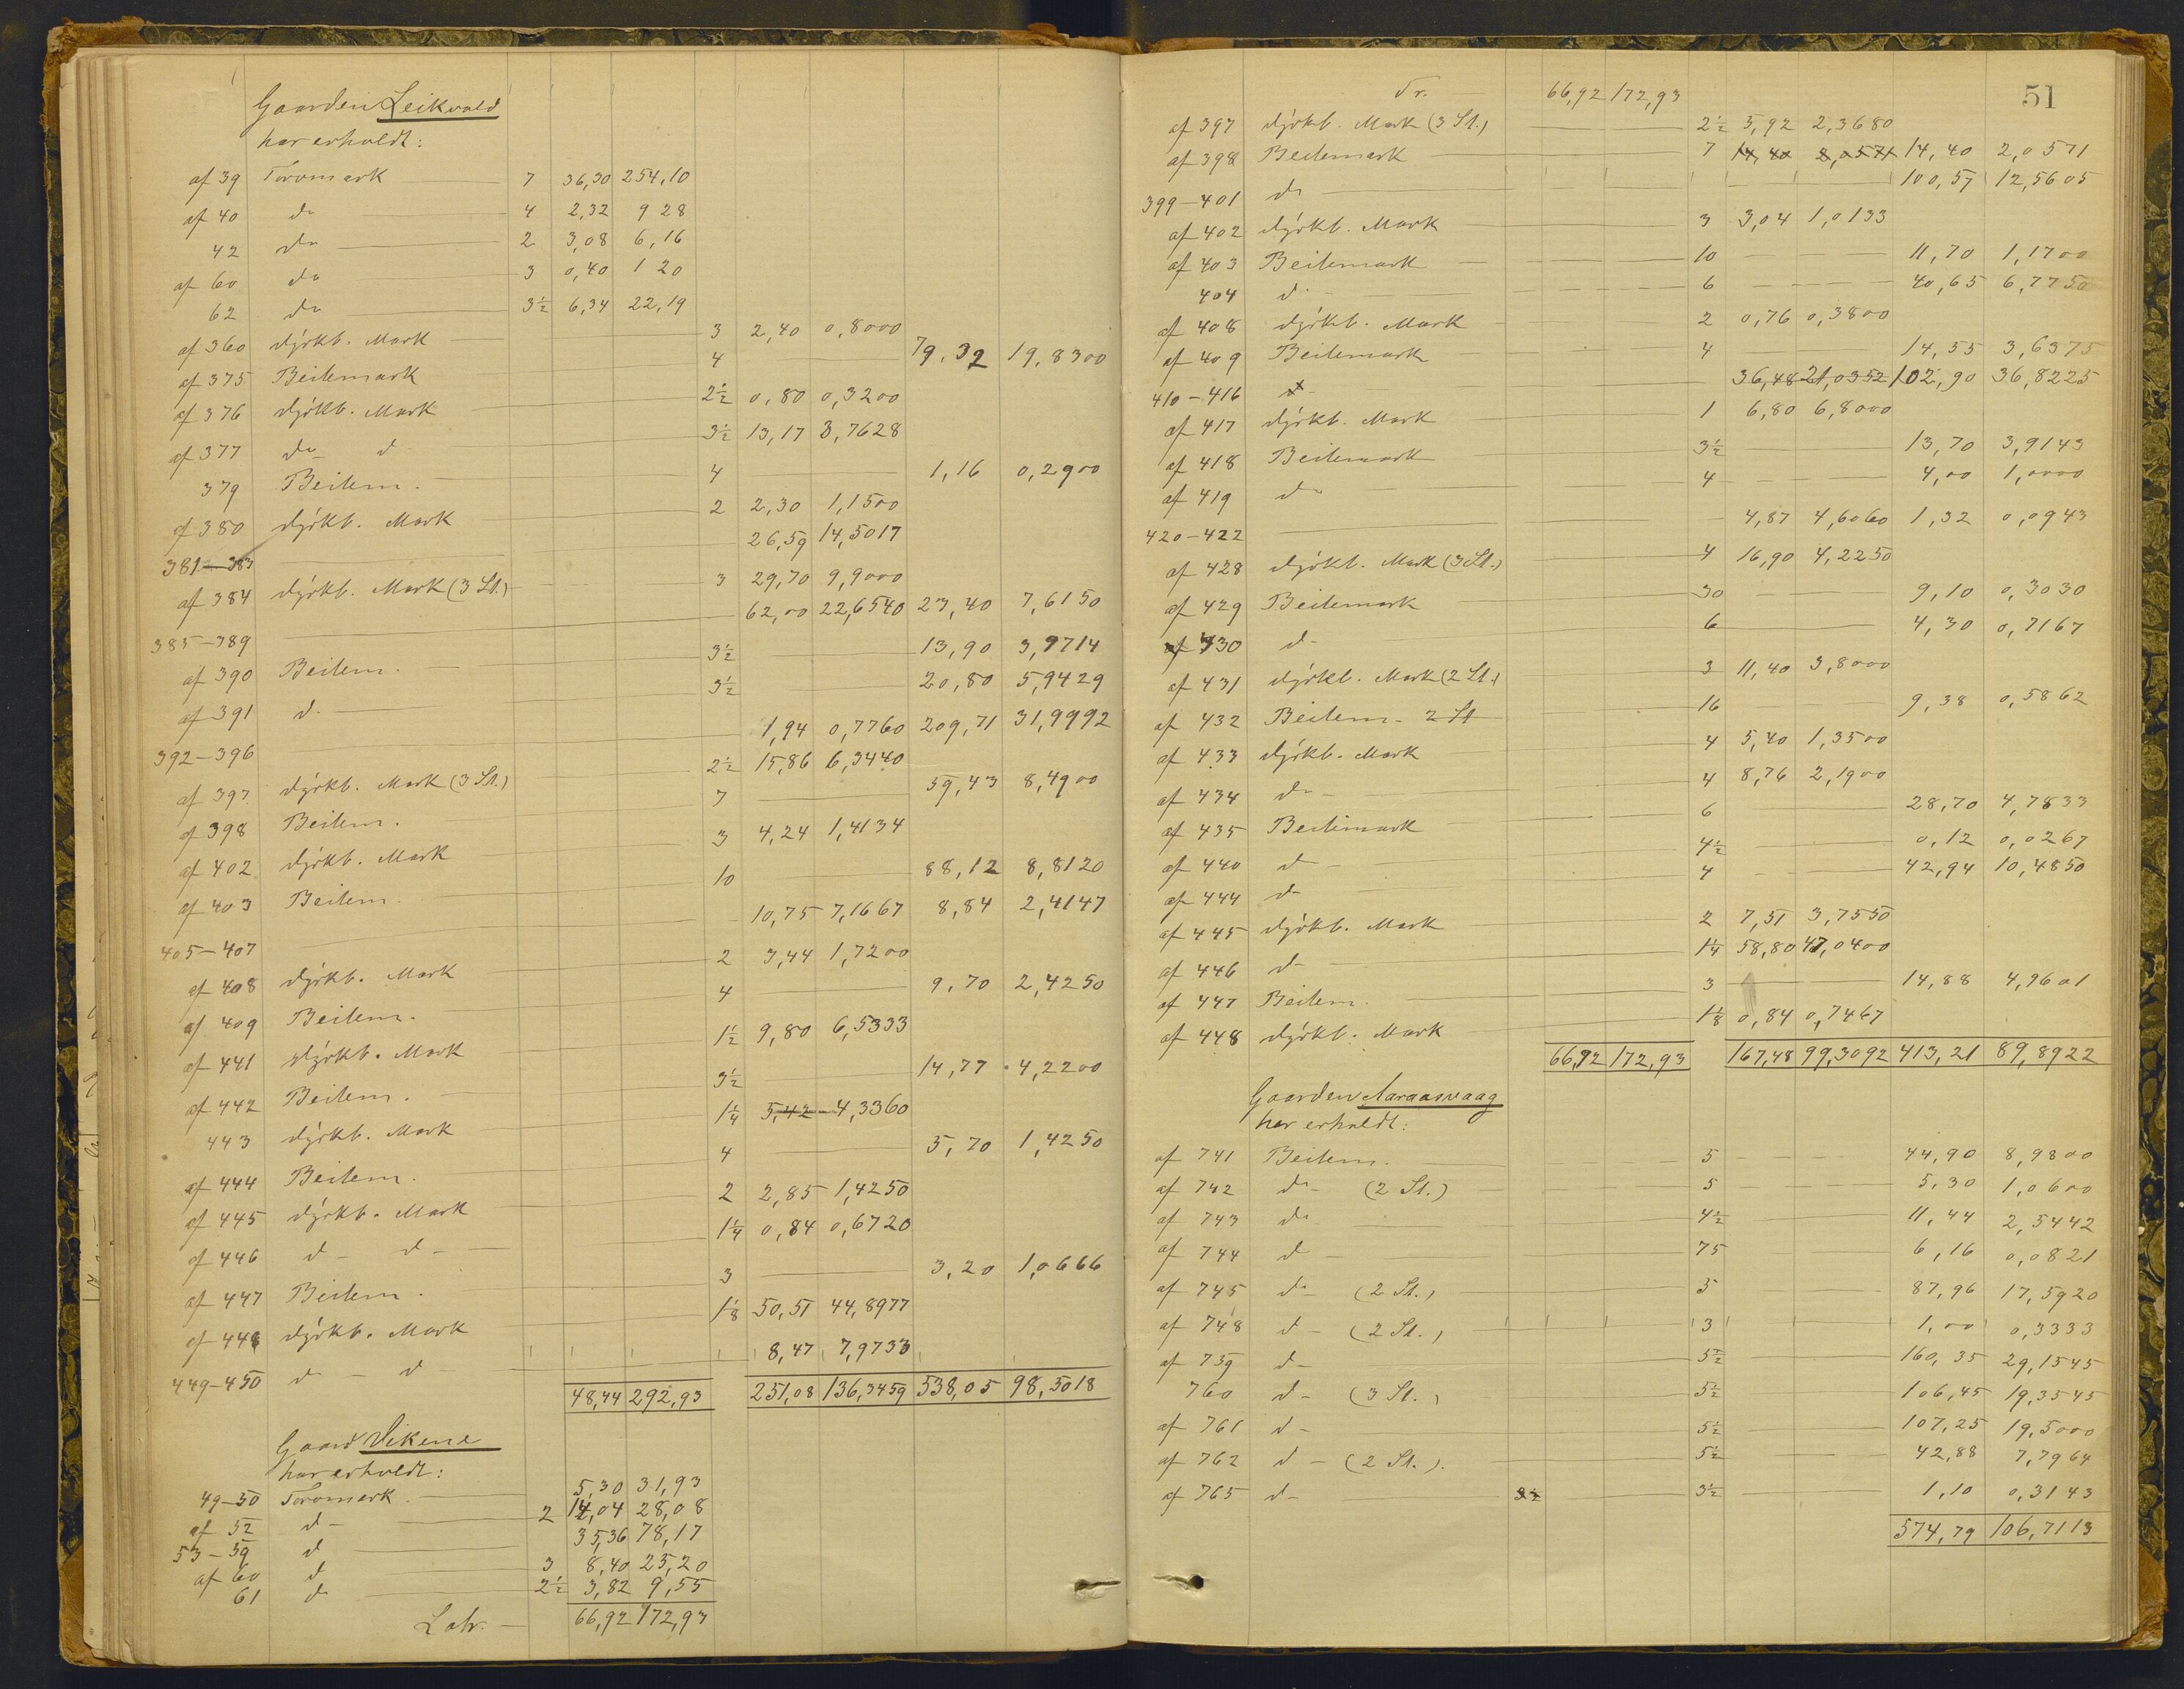 Gaarden Leikvold
har erholdt:
af 39 Torvmark 7 36,30 254,10
af 40 do 4 2,32 9 28
42 do 2 3,08 6,16
af 60 do 3 0,40 1 20
62 do 3½ 6,34 22,19
af 360 dyrkb. Mark 3 2,40 0,8000
af 375 Beitemark 4 79,32 19,8300
af 376 dyrkb. Mark 2½ 0,80 0,3200
af 377 do d- 3½ 13,17 3,7628
379 Beitem. 4 1,16 0,2900
af 380 dyrkb. Mark 2 2,30 1,1500
381-383 26,59 14,5017
af 384 dyrkb. Mark (3 St.) 3 29,70 9,9000
385-389 62,00 22,6540 23,40 7,6150
af 390 Beitem. 3½ 13,90 3,9714
af 391 d- 3½ 20,80 5,9429
392-396 1,94 0,7760 209,71 31,9992
af 397 dyrkb. Mark (3 St.) 2½ 15,86 6,3440
af 398 Beitem. 7 59,43 8,4900
af 402 dyrkb. Mark 3 4,24 1,4134
af 403 Beitem. 10 88,12 8,8120
405-407 10,75 7,1667 8,84 2,4147
af 408 dyrkb. Mark 2 3,44 1,7200
af 409 Beitem. 4 9,70 2,4250
af 441 dyrkb. Mark 1½ 9,80 6,5333
af 442 Beitem. 3½ 14,77 4,2200
443 dyrkb. Mark 1¼ 5,42 4,3360
af 444 Beitem. 4 5,70 1,4250
af 445 dyrkb. Mark 2 2,85 1,4250
af 446 d- d- 1¼ 0,84 0,6720
af 447 Beitem. 3 3,20 1,0666
af 448 dyrkb. Mark 1⅛ 50,51 44,8977
449-450 d- d 8,47 7,9733
48,44 292,93 251,08 136,3459 538,05 98,5018
Gaard Vikene
har erholdt:
49-50 Torvmark 5,30 31,93
af 52 d- 2 14,04 28,08
53-59 d 35,36 78,17
af 60 d 3 8,40 25,20
61 do 2½ 3,82 9,55
Latr. 66,92 172,93
51
Tr. 66,92 172,93
af 397 dyrkb. Mark (3 St.) 2½ 5,92 2,3680
af 398 Beitemark 7 14,40 2,0571 14,40 2,0571
399-401 do 100,57 12,5605
af 402 dyrkb. Mark 3 3,04 1,0133
af 403 Beitemark 10 11,70 1,1700
404 d- 6 40,65 6,7750
af 408 dyrkb. Mark 2 0,76 0,3800
af 409 Beitemark 4 14,55 3,6375
410-416 36,48 21,0352 102,90 36,8225
af 417 dyrkb. Mark 1 6,80 6,8000
af 418 Beitemark 3½ 13,70 3,9143
af 419 do 4 4,00 1,0000
420-422 4,87 4,6060 1,32 0,0943
af 428 dyrkb. Mark (3 St.) 4 16,90 4,2250
af 429 Beitemark 30 9,10 0,3030
af 430 d- 6 4,30 0,7167
af 431 dyrkb. Mark (2 St.) 3 11,40 3,8000
af 432 Beitem. 2 St 16 9,38 0,5862
af 433 dyrkb. Mark 4 5,40 1,3500
af 434 do 4 8,76 2,1900
af 435 Beitemark 6 28,70 4,7833
af 440 d- 4½ 0,12 0,0267
af 444 d- 4 42,94 10,4850
af 445 dyrkb. Mark 2 7,51 3,7550
af 446 d- 1¼ 58,80 47,0400
af 447 Beitem. 3 14,88 4,9601
af 448 dyrkb. Mark 1⅛ 0,84 0,7467
66,92 172,93 167,48 99,3092 413,21 89,8922
Gaarden Aaraasvaag
har erholdt:
af 741 Beitem. 5 44,90 8,9800
af 742 do (2 St.) 5 5,30 1,0600
af 743 do 4½ 11,44 2,5442
af 744 d- 75 6,16 0,0821
af 745 d- (2 St.) 5 87,96 17,5920
af 748 d- (2 St.) 3 1,00 0,3333
af 759 d- 5½ 160,35 29,1545
760 d- (3 St.) 5½ 106,45 19,3545
af 761 d- 5½ 107,25 19,5000
af 762 d- (2 St.). 5½ 42,88 7,7964
af 765 d- 3½ 1,10 0,3143
574,79 106,7113